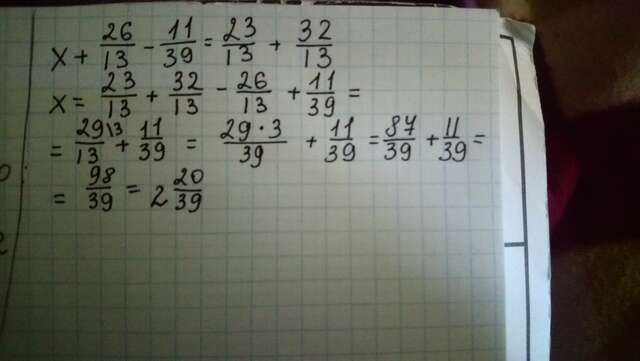 x + 26/13 - 11/39 = 23/13 + 32/13
x = 23/13 + 32/13 - 26/13 + 11/39 =
= 29\3/13 + 11/39 = 29·3/39 + 11/39 = 87/39 + 11/39 =
= 98/39 = 2 20/39